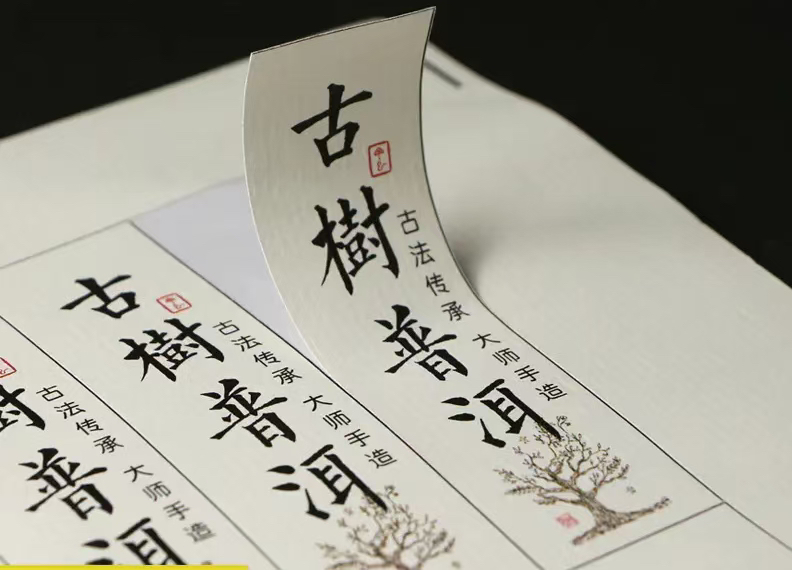 古樹普洱
古法传承
大师手造
古樹普洱
古法传承
大师手造
樹普洱
古法传承
大师手造